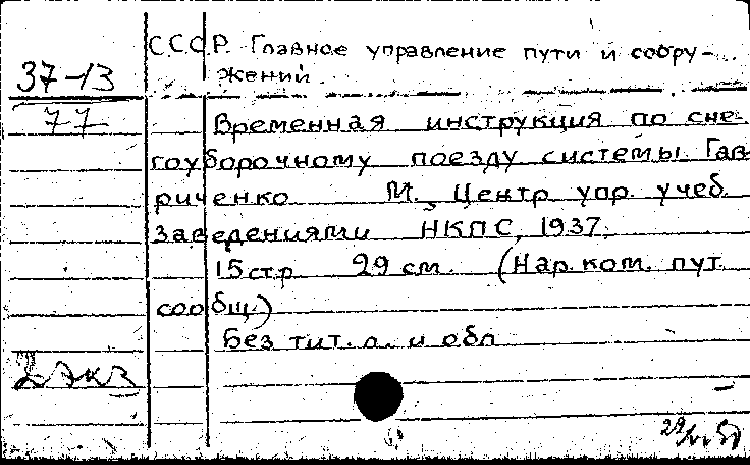 С.С.С.Р. Главное управление пути и соору-
37-13
жений.
77
Временная инструкция по сне-
гоуборочному поезду системы Гав
риченко М., Центр упр. учеб.
заведениями НКПС, 1937.
15 стр 29 см. (Нар. ком. пут.
сообщ.)
Без тит. л. и обл
2 экз